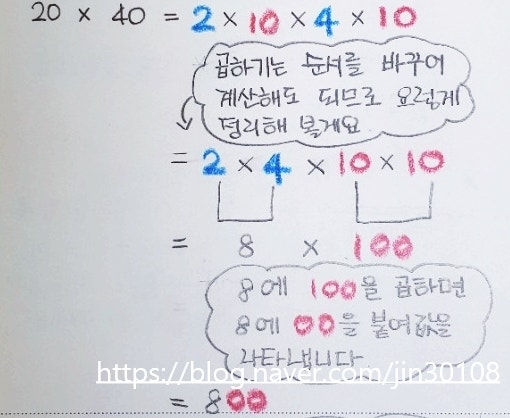 20 × 40 = 2 × 10 × 4 × 10
곱하기는 순서를 바꾸어
계산해도 되므로 요렇게
정리해 볼게요
= 2 × 4 × 10 × 10
= 8 × 100
8에 100을 곱하면
8에 00을 붙여값을
나타냅니다
https://blog.naver.com/jin30108
= 800